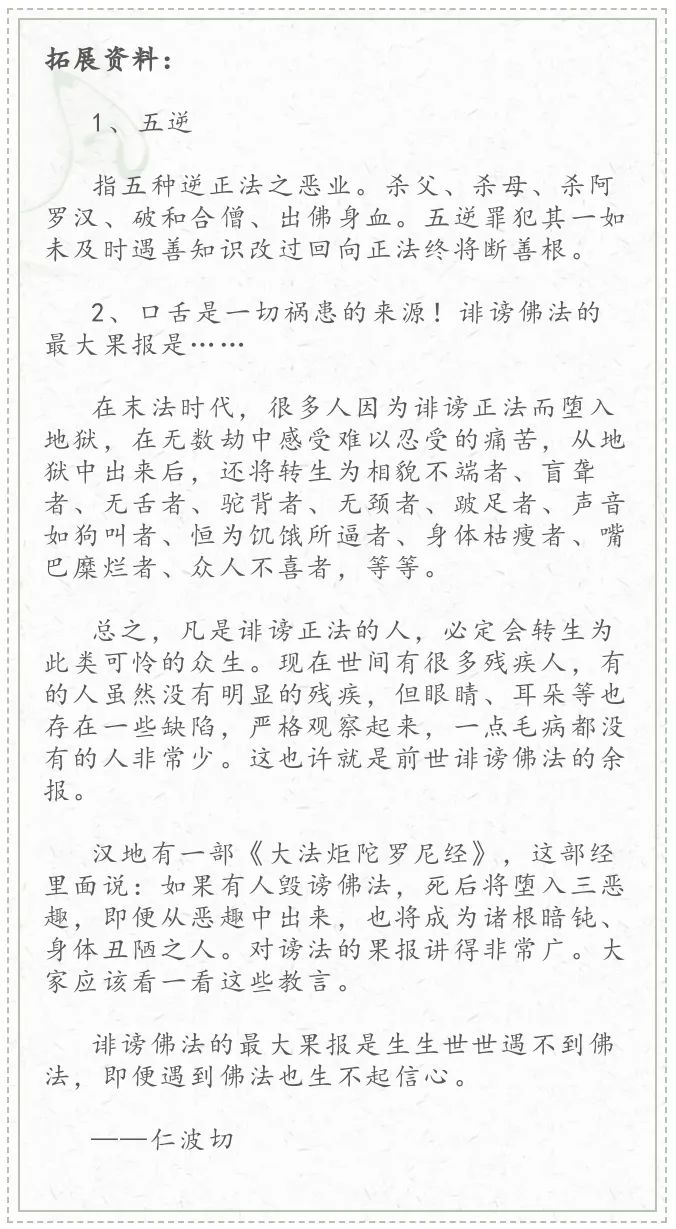 拓展资料：
1、五逆
指五种逆正法之恶业。杀父、杀母、杀阿
罗汉、破和合僧、出佛身血。五逆罪犯其一如
未及时遇善知识改过回向正法终将断善根。
2、口舌是一切祸患的来源！诽谤佛法的
最大果报是……
在末法时代，很多人因为诽谤正法而堕入
地狱，在无数劫中感受难以忍受的痛苦，从地
狱中出来后，还将转生为相貌不端者、盲聋
者、无舌者、驼背者、无颈者、跛足者、声音
如狗叫者、恒为饥饿所逼者、身体枯瘦者、嘴
巴糜烂者、众人不喜者，等等。
总之，凡是诽谤正法的人，必定会转生为
此类可怜的众生。现在世间有很多残疾人，有
的人虽然没有明显的残疾，但眼睛、耳朵等也
存在一些缺陷，严格观察起来，一点毛病都没
有的人非常少。这也许就是前世诽谤佛法的余
报。
汉地有一部《大法炬陀罗尼经》，这部经
里面说：如果有人毁谤佛法，死后将堕入三恶
趣，即便从恶趣中出来，也将成为诸根暗钝、
身体丑陋之人。对谤法的果报讲得非常广。大
家应该看一看这些教言。
诽谤佛法的最大果报是生生世世遇不到佛
法，即便遇到佛法也生不起信心。
——仁波切